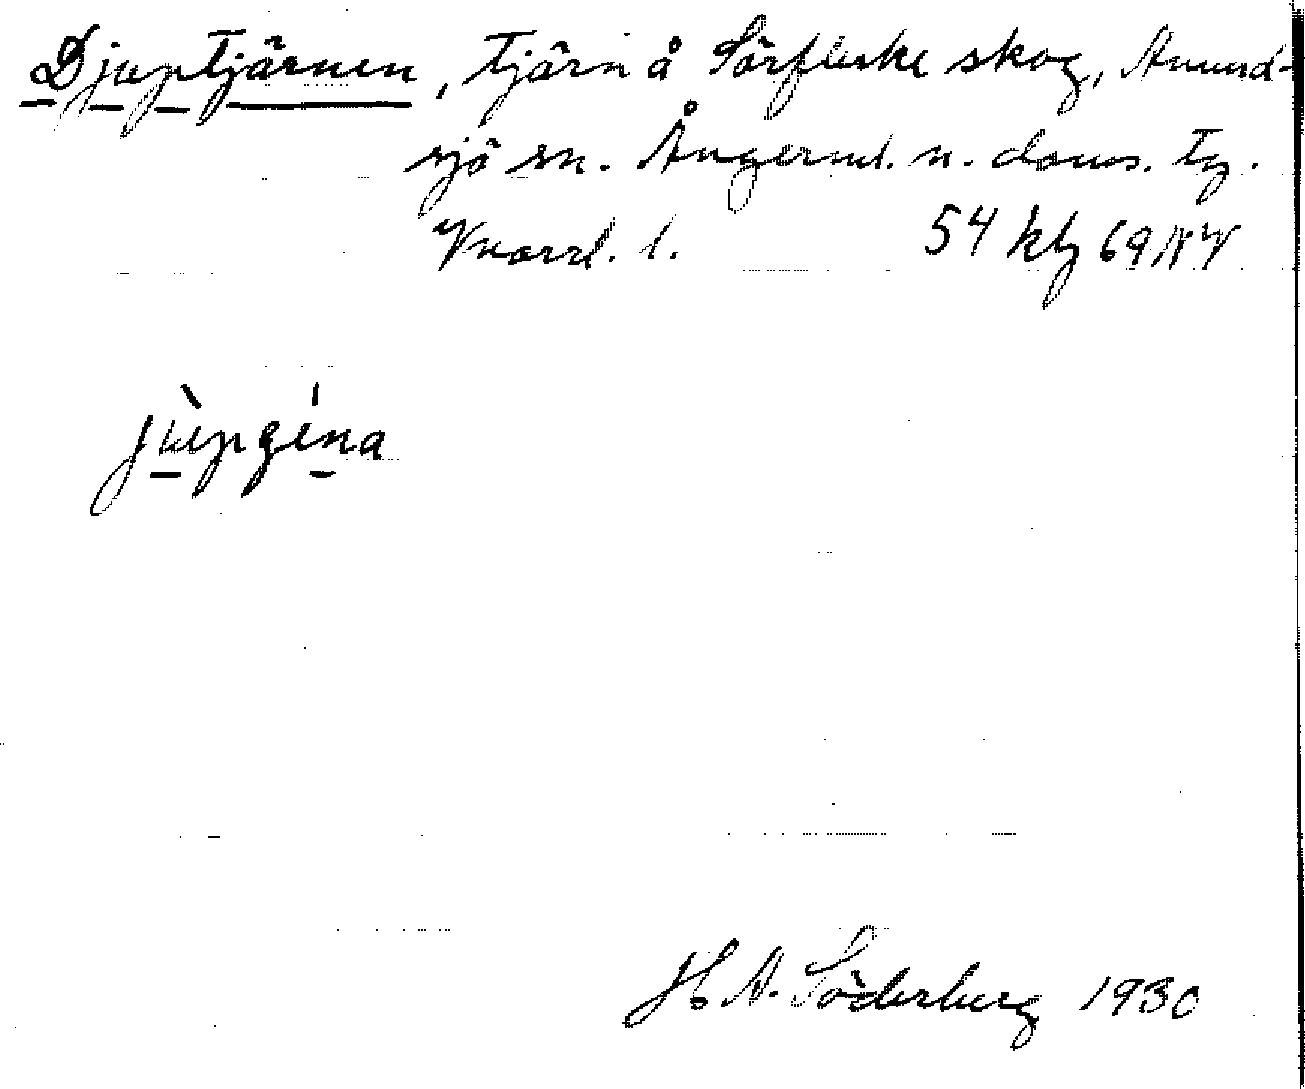 Djuptjärnen, tjärn å Sörfleske skog, Anund-
sjö sn. Ångerml. n. doms. tg.
Vnorrl. l. 54 kbl 69 NV
jùpgéna
H A. Söderberg 1930